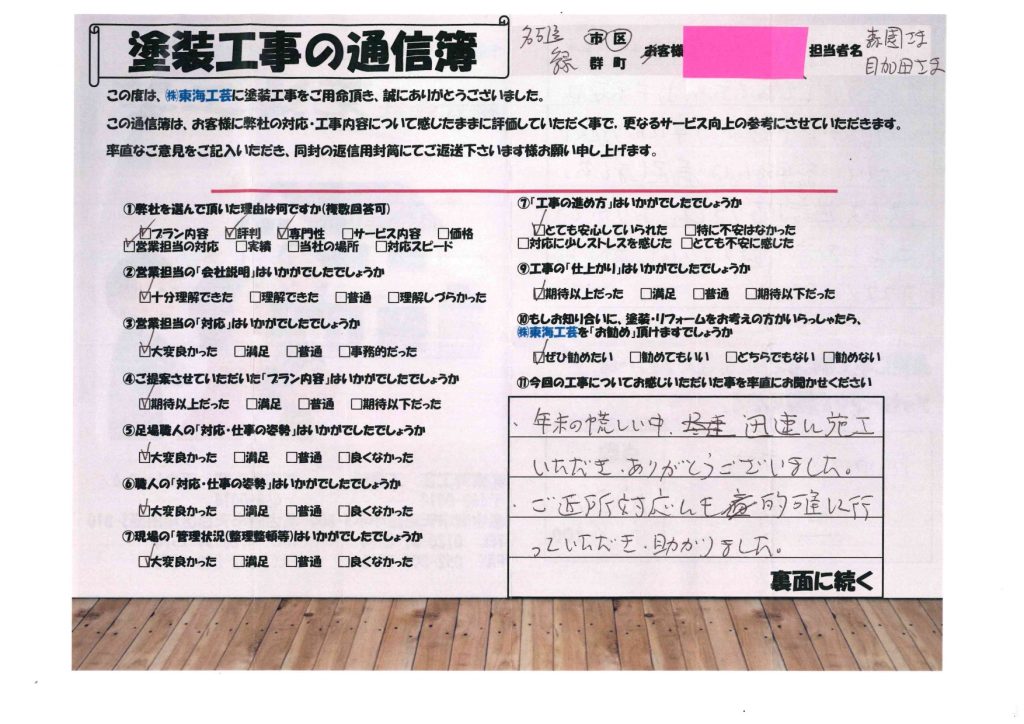 塗装工事の通信簿
名古屋 市 区
緑 群 町
お客様
担当者名 森園さま
目加田さま
この度は、㈱東海工芸に塗装工事をご用命頂き、誠にありがとうございました。
この通信簿は、お客様に弊社の対応・工事内容について感じたままに評価していただく事で、更なるサービス向上の参考にさせていただきます。
率直なご意見をご記入いただき、同封の返信用封筒にてご返送下さいます様お願い申し上げます。
①弊社を選んで頂いた理由は何ですか(複数回答可)
☑プラン内容 ☑評判 ☑専門性 □サービス内容 □価格
☑営業担当の対応 □実績 □当社の場所 □対応スピード
②営業担当の「会社説明」はいかがでしたでしょうか
☑十分理解できた □理解できた □普通 □理解しづらかった
③営業担当の「対応」はいかがでしたでしょうか
☑大変良かった □満足 □普通 □事務的だった
④ご提案させていただいた「プラン内容」はいかがでしたでしょうか
☑期待以上だった □満足 □普通 □期待以下だった
⑤足場職人の「対応・仕事の姿勢」はいかがでしたでしょうか
☑大変良かった □満足 □普通 □良くなかった
⑥職人の「対応・仕事の姿勢」はいかがでしたでしょうか
☑大変良かった □満足 □普通 □良くなかった
⑦現場の「管理状況(整理整頓等)はいかがでしたでしょうか
☑大変良かった □満足 □普通 □良くなかった
⑦「工事の進め方」はいかがでしたでしょうか
☑とても安心していられた □特に不安はなかった
□対応に少しストレスを感じた □とても不安に感じた
⑨工事の「仕上がり」はいかがでしたでしょうか
☑期待以上だった □満足 □普通 □期待以下だった
⑩もしお知り合いに、塗装・リフォームをお考えの方がいらっしゃたら、
㈱東海工芸を「お勧め」頂けますでしょうか
☑ぜひ勧めたい □勧めてもいい □どちらでもない □勧めない
⑪今回の工事についてお感じいただいた事を率直にお聞かせください
・年末の慌しい中、迅速に施工
いただき、ありがとうございました。
・ご近所対応にも的確に行
っていただき、助かりました。
裏面に続く